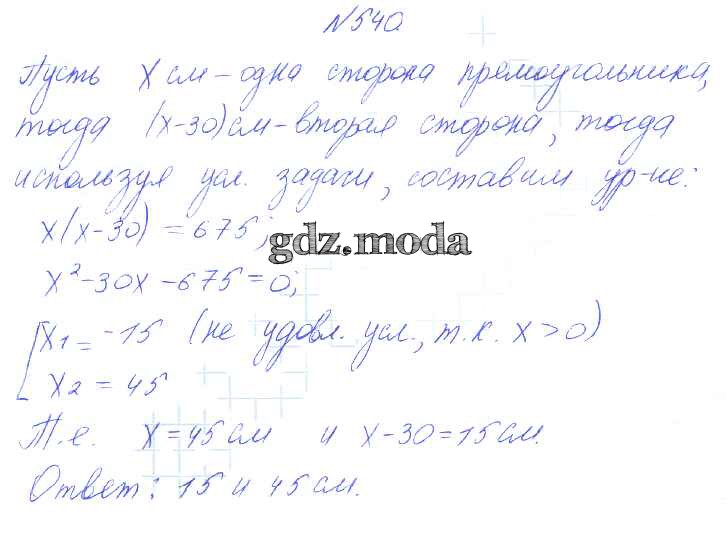 №540
Пусть x см – одна сторона прямоугольника,
тогда (x-30) см – вторая сторона, тогда
используя усл. задачи, составим ур-не:
x(x-30) = 675;
gdz.moda
x²-30x-675=0;
[x₁ = -15 (не удовл. усл., т.к. x>0)
x₂ = 45
Т.е. x=45 см и x-30=15 см.
Ответ: 15 и 45 см.